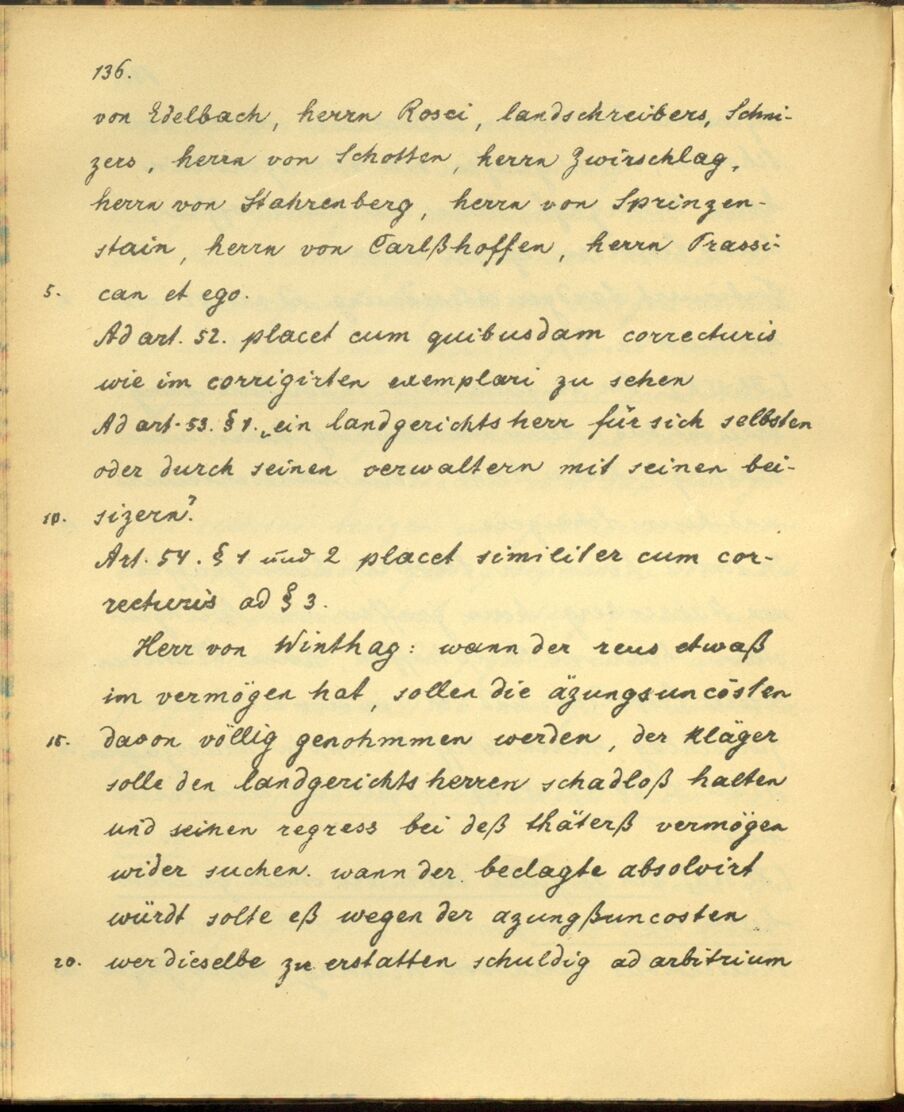 136.
von Edelbach, herrn Rosci, landschreibers, Schni-
zers, herrn von Schotten, herrn Zwirschlag,
herrn von Stahrenberg, herrn von Sprinzen-
stain, herrn von Carlßhoffen, herrn Trassi-
5. can et ego.
Ad art. 52. placet cum quibusdam correcturis
wie im corrigirten exemplari zu sehen
Ad art. 53. § 1. „ein landgerichtsherr für sich selbsten
oder durch seinen verwaltern mit seinen bei-
10. sizern“?
Art. 54. § 1 und 2 placet similiter cum cor-
recturis ad § 3.
Herr von Winthag: wann der reus etwaß
im vermögen hat, sollen die äzungsuncösten
15. davon völlig genohmmen werden, der kläger
solle den landgerichtsherren schadloß halten
und seinen regress bei deß thäterß vermögen
wider suchen. wann der beclagte absolvirt
würdt solte eß wegen der azungßuncosten
20. wer dieselbe zu erstatten schuldig ad arbitrium